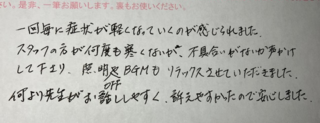 い。是非、一筆お願いします。裏もお使いください。
一回毎に症状が軽くなっていくのが感じられました。
スタッフの方が何度も寒くないか、不具合がないか声がけ
して下さり、照明やBGMもリラックスさせていただきました。
OFF
何より先生がお話ししやすく、訴えやすかったので安心しました。